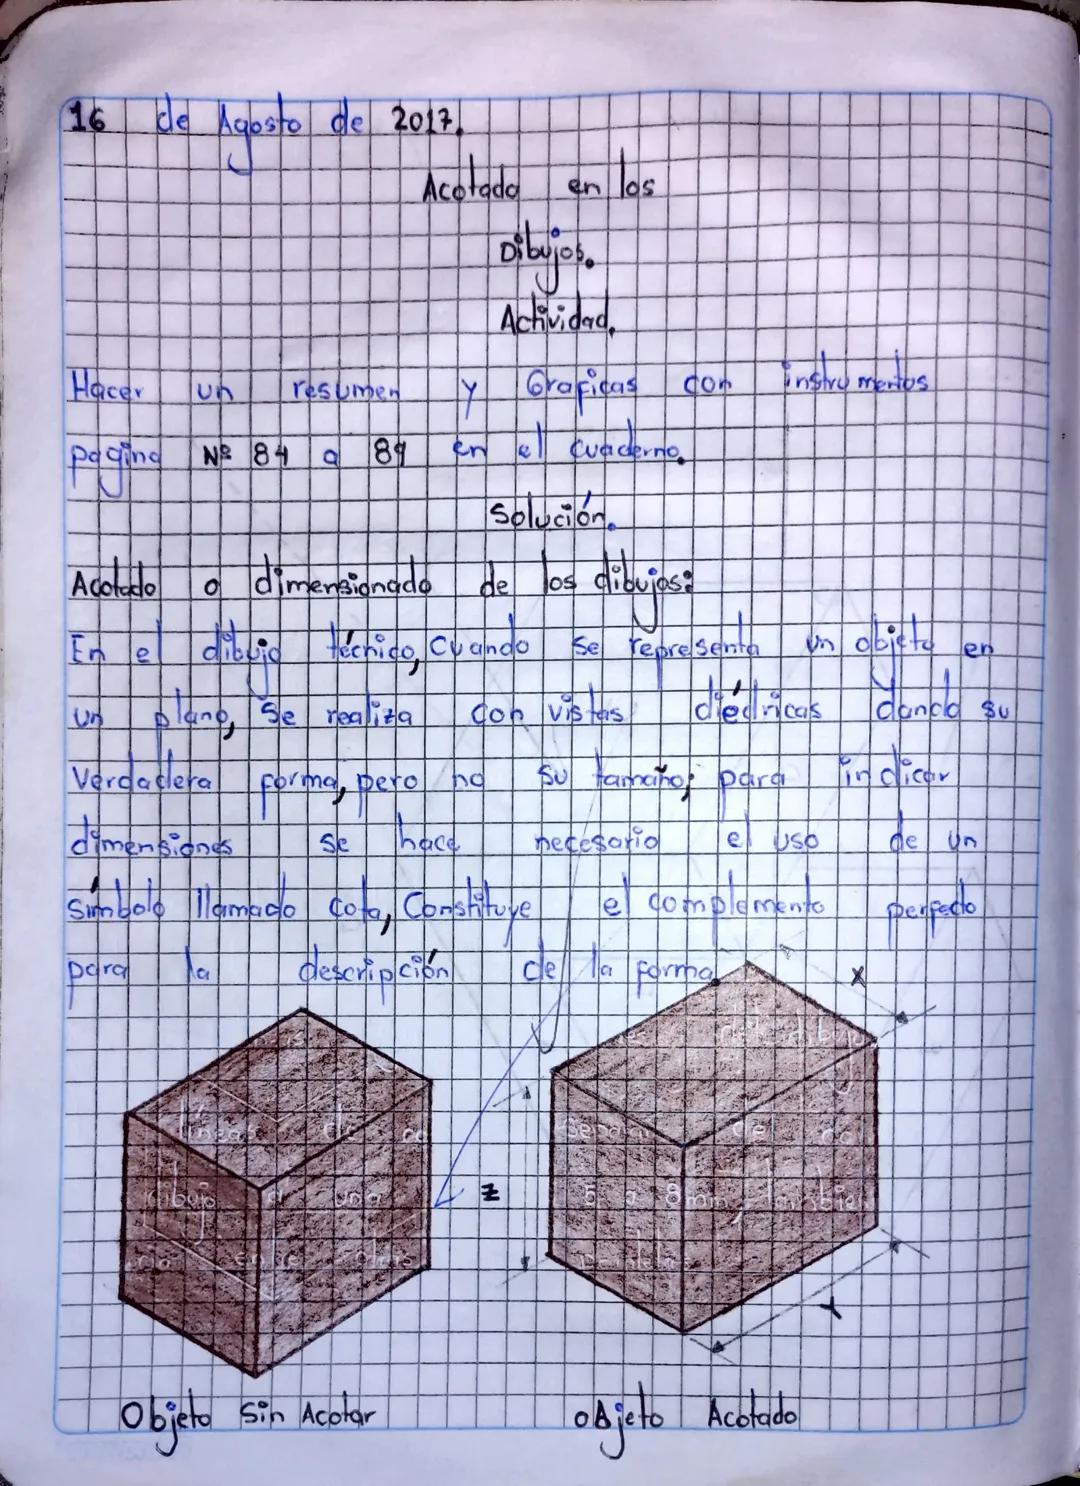 16 de Agosto de 2017.
Acotado en los
Dibujos.
Actividad.
Hacer un resumen y Graficas con instrumentos
pagina Nº 84 a 89 en el cuaderno.
Solución.
Acotado o dimensionado de los dibujos:
En el dibujo técnico, Cuando se representa un objeto en
un plano, Se realiza con vistas diédricas dando su
Verdadera forma, pero no su tamaño; para indicar
dimensiones se hace necesario el uso de un
símbolo llamado cota, Constituye el complemento perfecto
para la descripción de la forma
X
del dibujo
líneas de
Separa del
Z
dibujo a una
5 a 8mm, también
Y
Objeto Sin Acotar
oBjeto Acotado